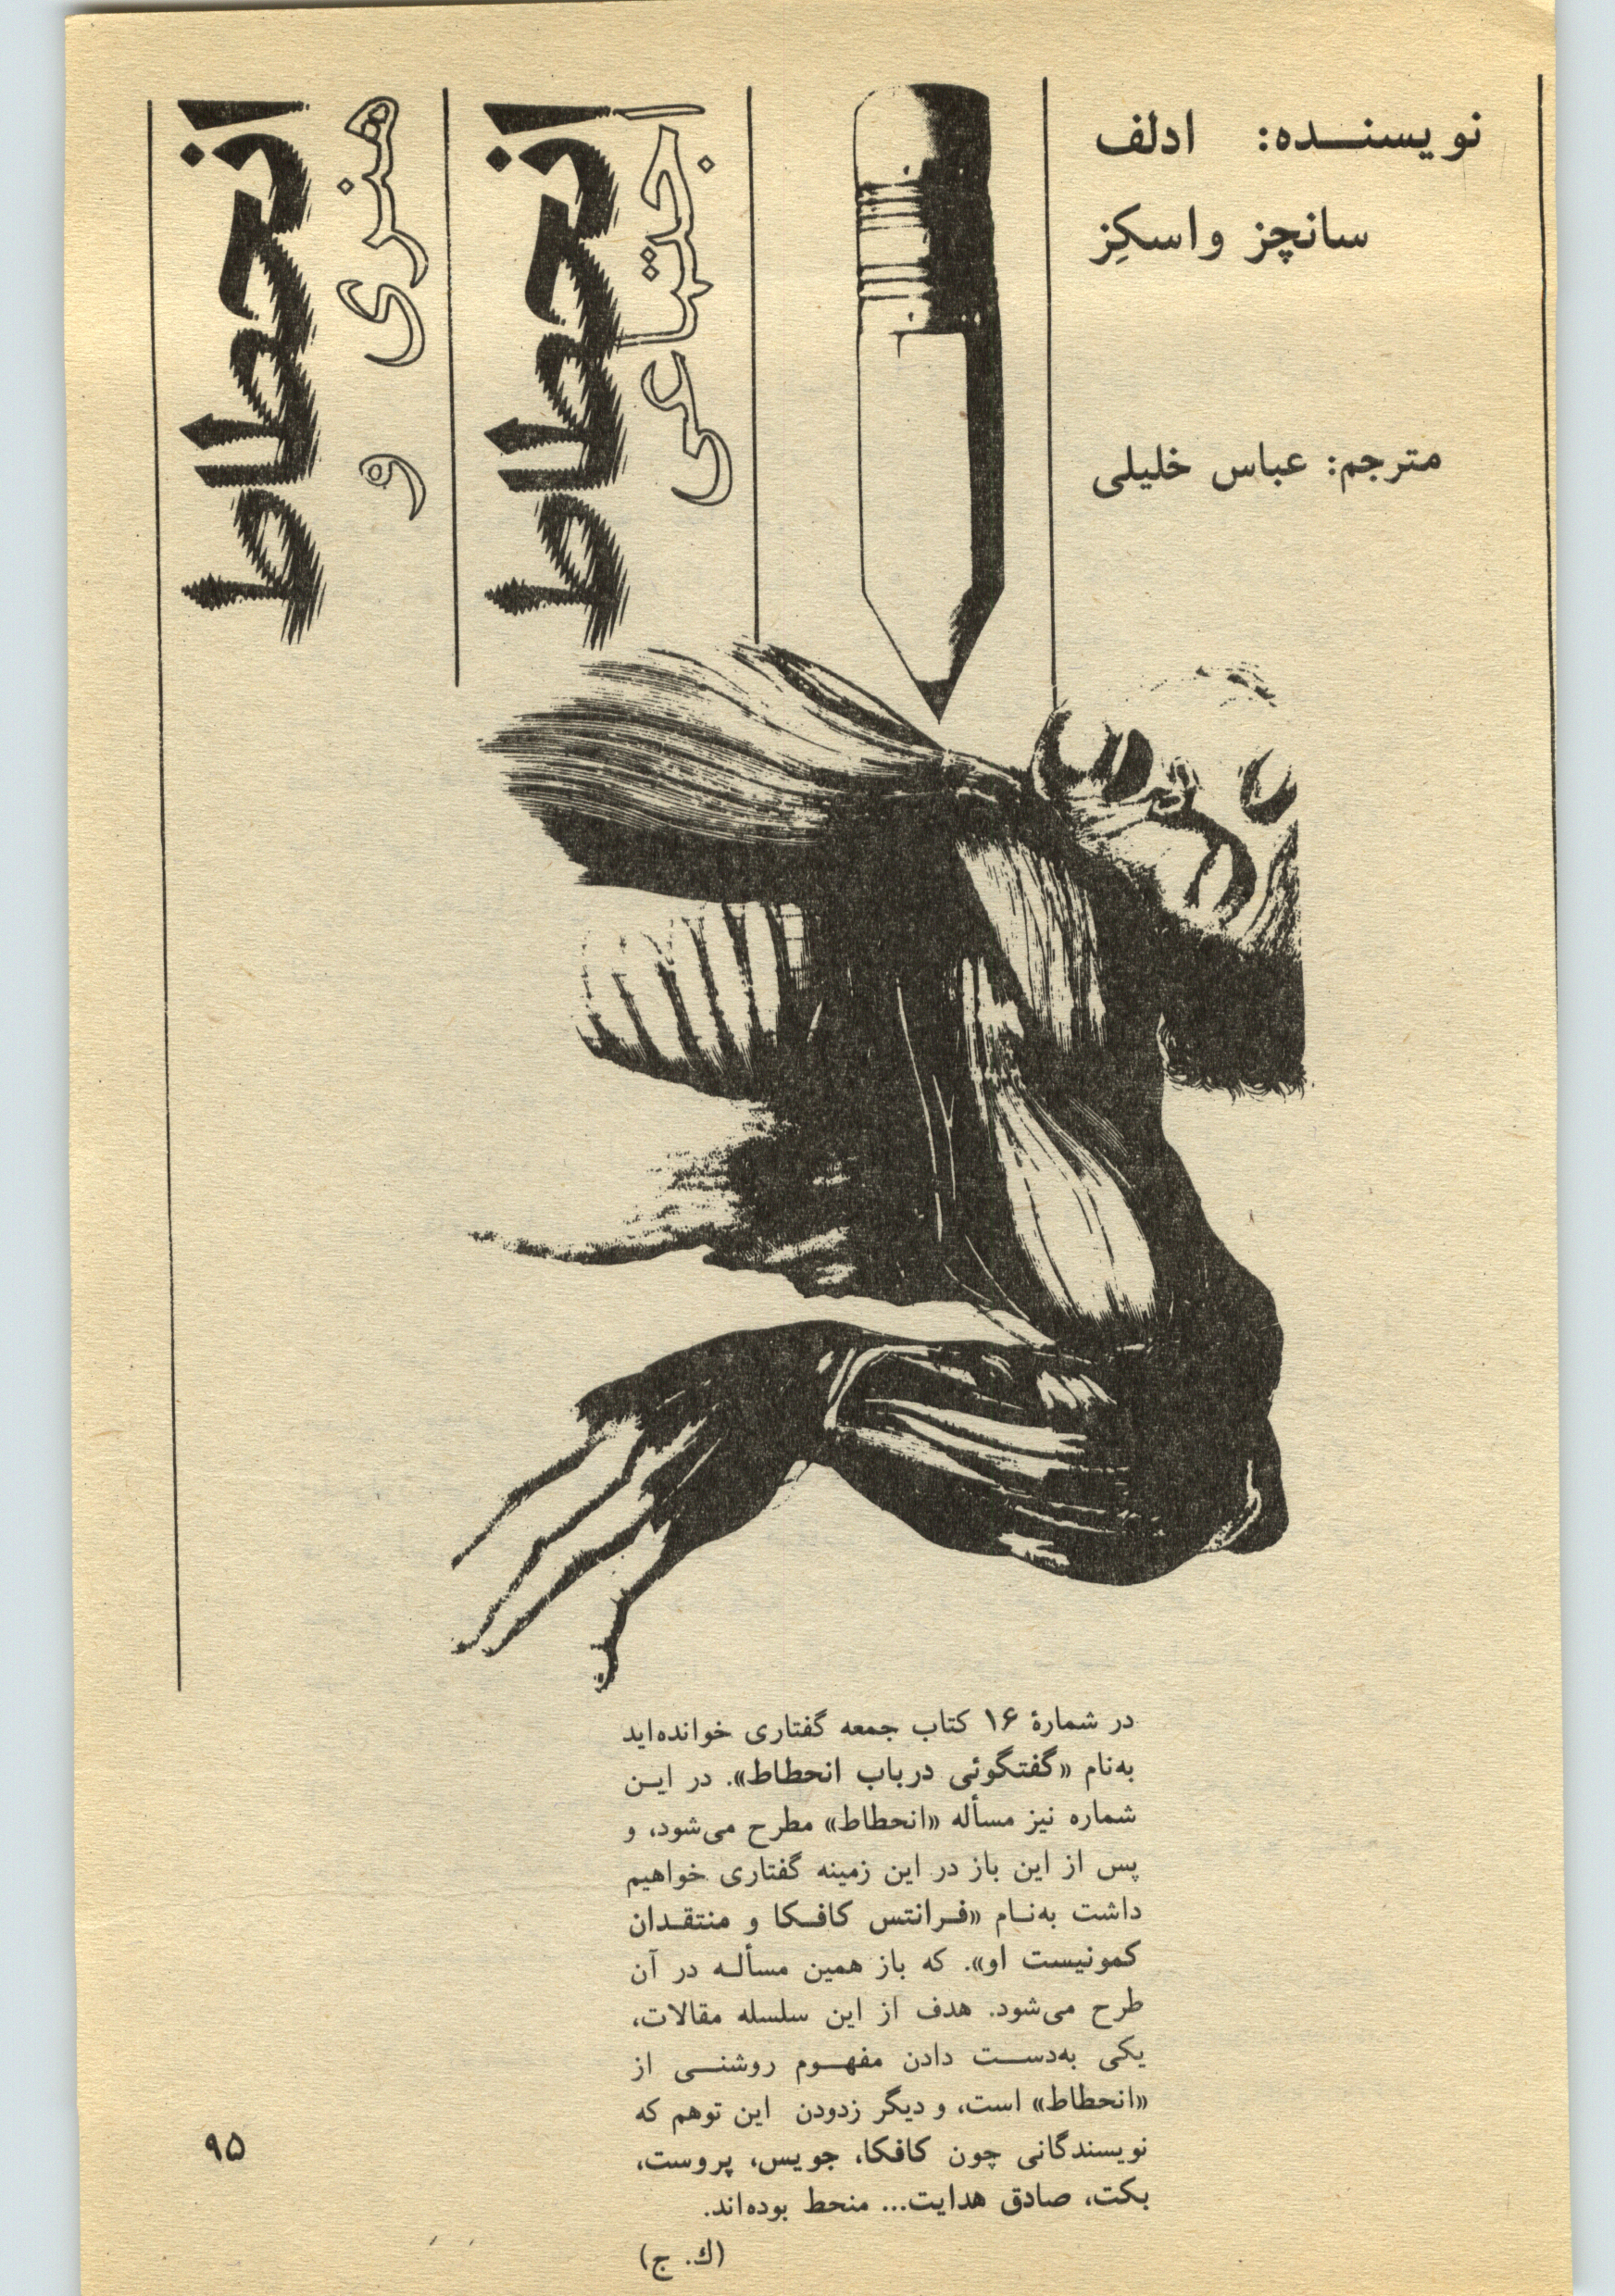 نویسنده: ادلف
سانچز واسکِز
مترجم: عباس خلیلی
انحطاط
هنری و
انحطاط
اجتماعی
در شمارۀ ۱۶ کتاب جمعه گفتاری خوانده‌اید
به‌نام «گفتگوئی درباب انحطاط». در این
شماره نیز مسأله «انحطاط» مطرح می‌شود، و
پس از این باز در این زمینه گفتاری خواهیم
داشت به‌نام «فرانتس کافکا و منتقدان
کمونیست او». که باز همین مسأله در آن
طرح می‌شود. هدف از این سلسله مقالات،
یکی به‌دست دادن مفهوم روشنی از
«انحطاط» است، و دیگر زدودن این توهم که
نویسندگانی چون کافکا، جویس، پروست،
بکت، صادق هدایت... منحط بوده‌اند.
(ك. ج)
۹۵